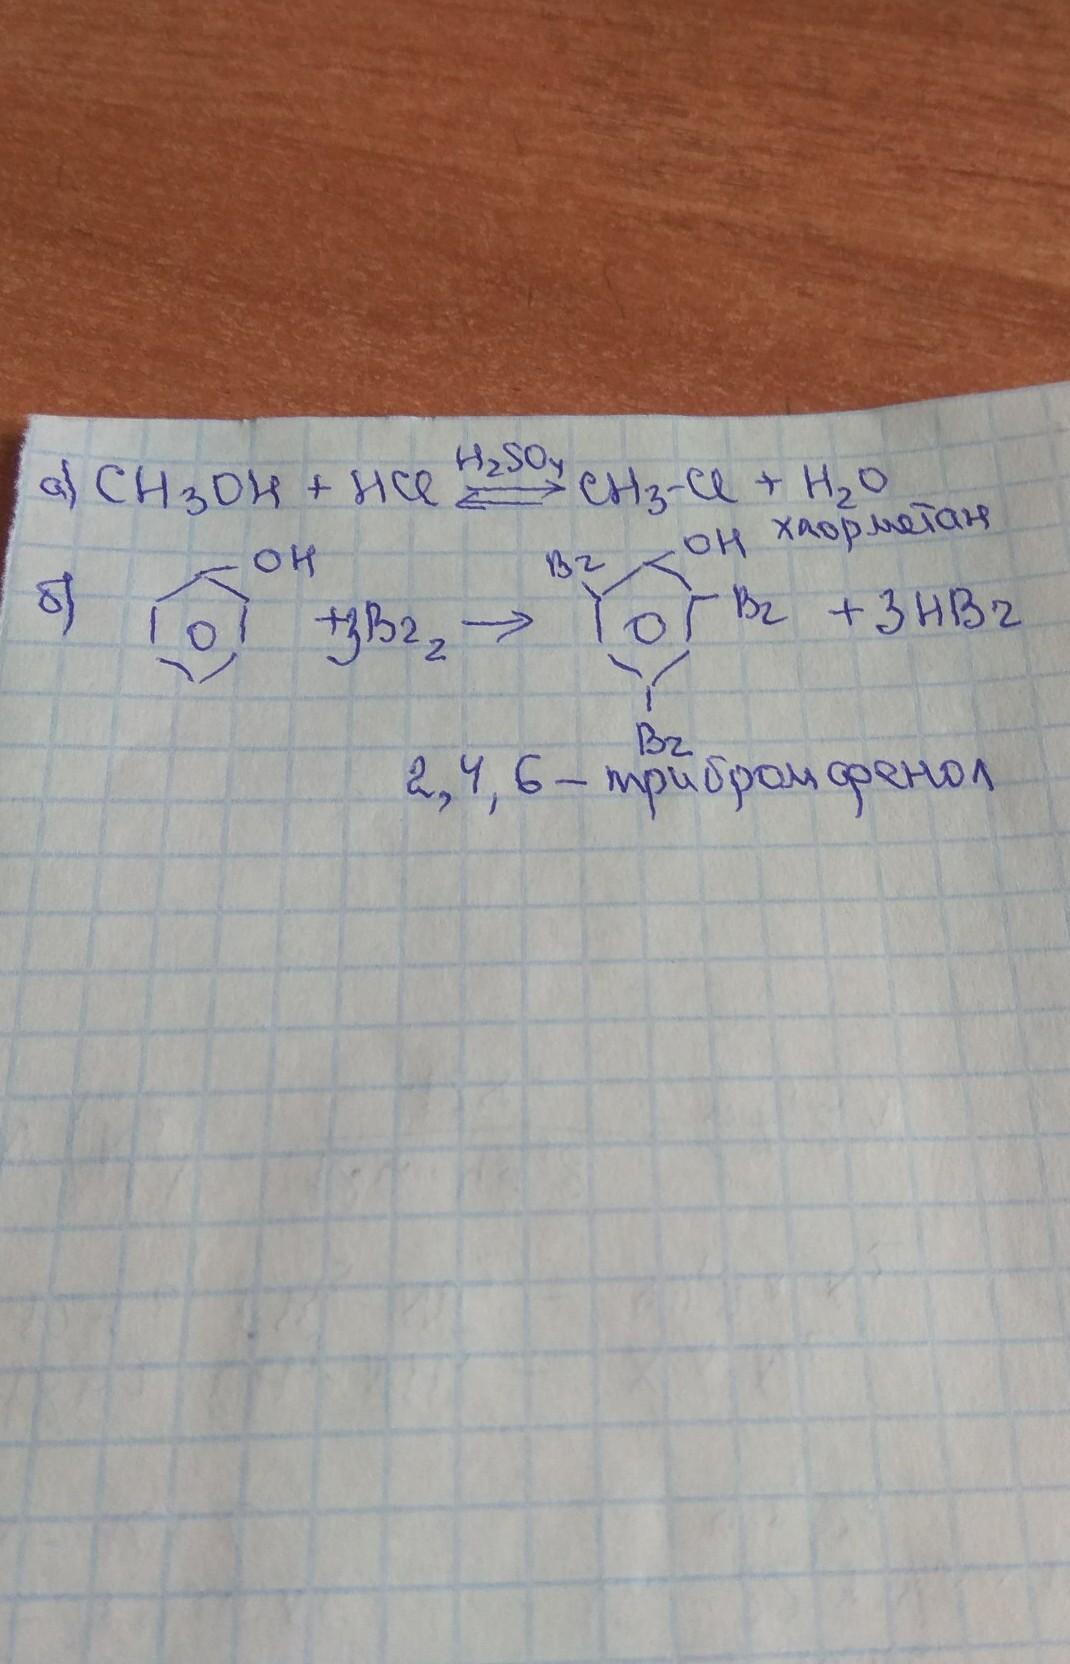 а) CH₃OH + HCl ⇌ H₂SO₄ CH₃-Cl + H₂O
хлорметан
б) OH +3Br₂ → Br OH Br + 3HBr
Br
2,4,6 – трибромфенол